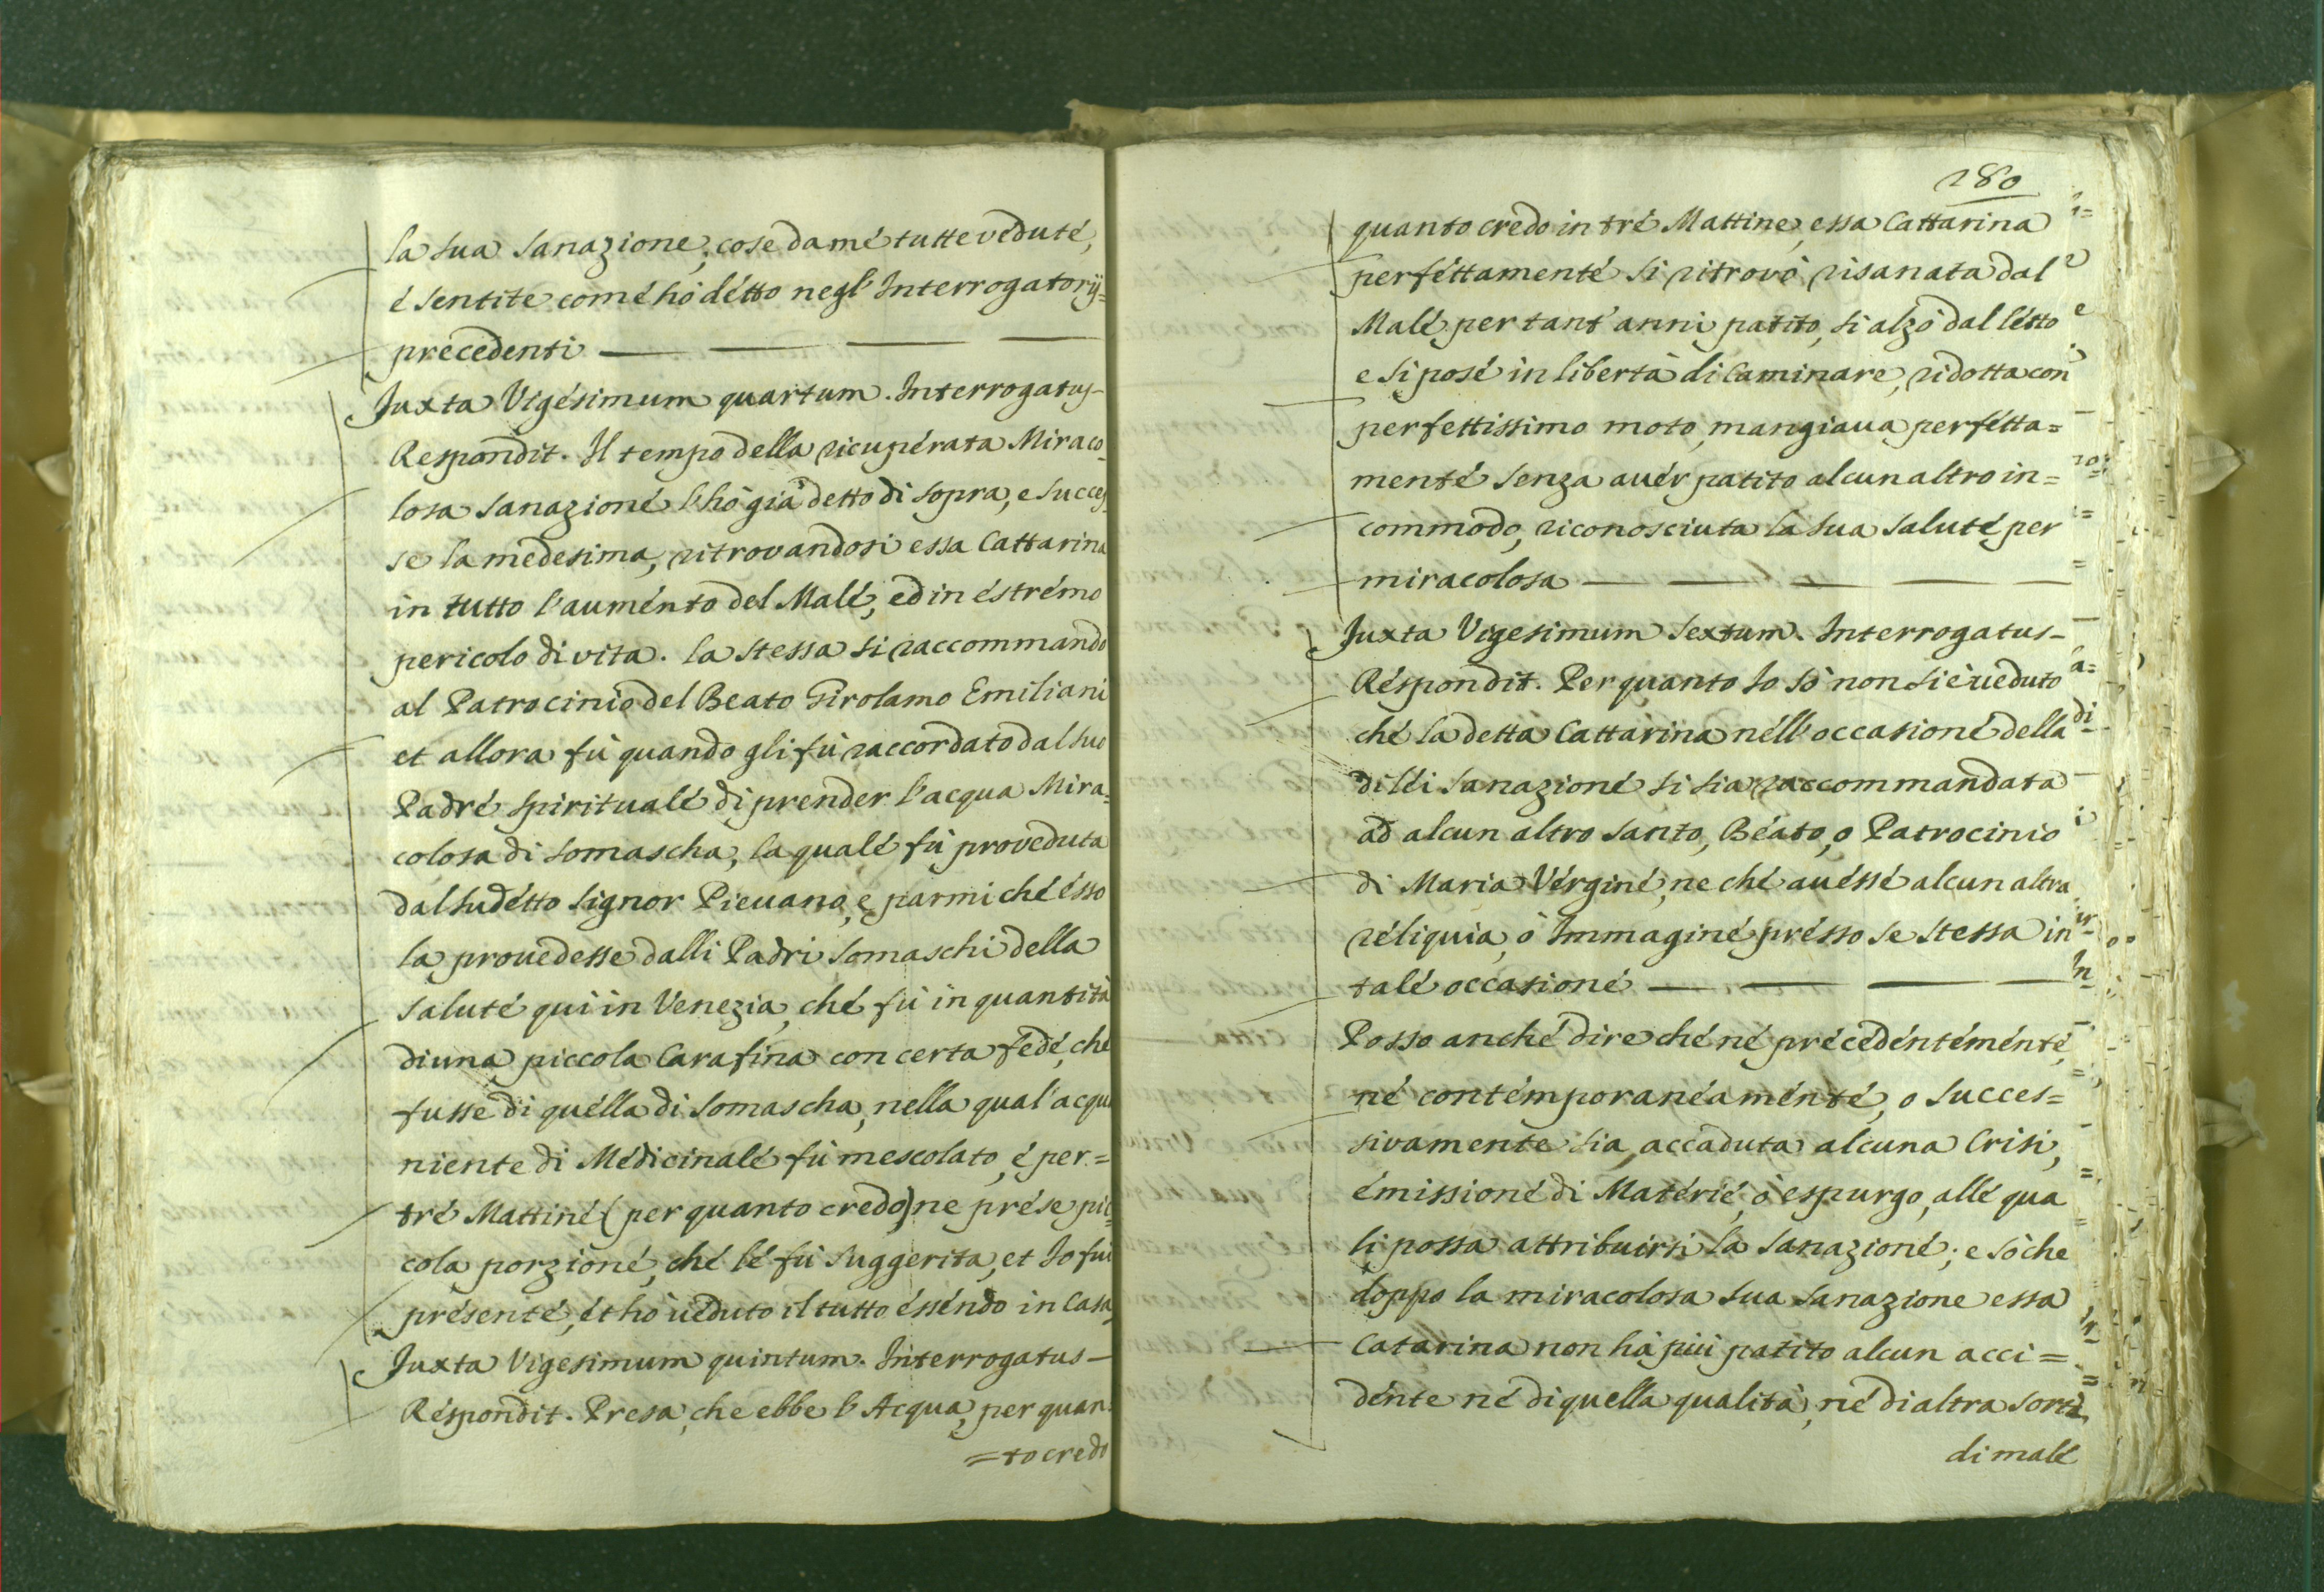 la sua sanazione, cose da mé tutte vedute,
é sentite comé hò détto negl' Interrogatorij=
precedenti
Juxta Vigésimum quartum. Interrogatus-
Respondit. Il tempo della ricupérata Miraco
losa sanazioné l'hò già detto di sopra, e succes
se la medesima, ritrovandosi essa Cattarina
in tutto l'auménto del Malé, ed in éstrémo
pericolo di vita. la stessa si raccommandò
al Patrocinio del Beato Girolamo Emiliani
et allora fù quando gli fù raccordato dal suo
Padré spiritualé di prender l'acqua Mira=
colosa di Somascha, la qualé fù proveduta
dal sudétto Signor Pievano, e parmi ché ésso
la provedesse dalli Padri Somaschi della
saluté quì in Venezia, ché fù in quantità
di una piccola Carafina con certa fédé, ché
fusse di quélla di Somascha, nella qual'acqua
niente di Médicinalé fù mescolato, é per=
tré Mattiné (per quanto credo) ne prése pic=
cola porzioné, ché lé fù suggerita, et Io fui
présenté, ét hò véduto il tutto éssendo in Casa
Juxta Vigesimum quintum. Interrogatus-
Réspondit. Presa, che ebbe l'Acqua, per quan
=to credo
280
quanto credo in tré Mattine, essa Cattarina
perféttamenté si ritrovò risanata dal
Malé per tant'anni patito, si alzò dal létto
e si posé in libertà di Caminare, ridotta con
perfettissimo moto, mangiava perfétta=
menté senza avér patito alcun altro in=
commodo, riconosciuta la sua saluté per
miracolosa
Juxta Vigesimum Sextum. Interrogatus-
Réspondit. Per quanto Io sò non si è veduto
ché la detta Cattarina néll'occasioné della
di léi sanazioné si sia raccommandata
ad alcun altro Santo, Béato, o Patrocinio
di Maria Vérginé, ne ché avéssé alcun altra
réliquia, ò Immaginé présso se stessa in
talé occasioné
Posso anché dire ché né précédéntéménté,
né contémporanéaménté, o succes=
sivamente sia accaduta alcuna Crisi,
émissioné di Matérié, ò espurgo, allé qua
li possa attribuirsi la sanazioné; e sò che
doppo la miracolosa sua sanazione essa
Catarina non hà più patito alcun acci=
dénte né di quella qualità, né di altra sorte
di malé